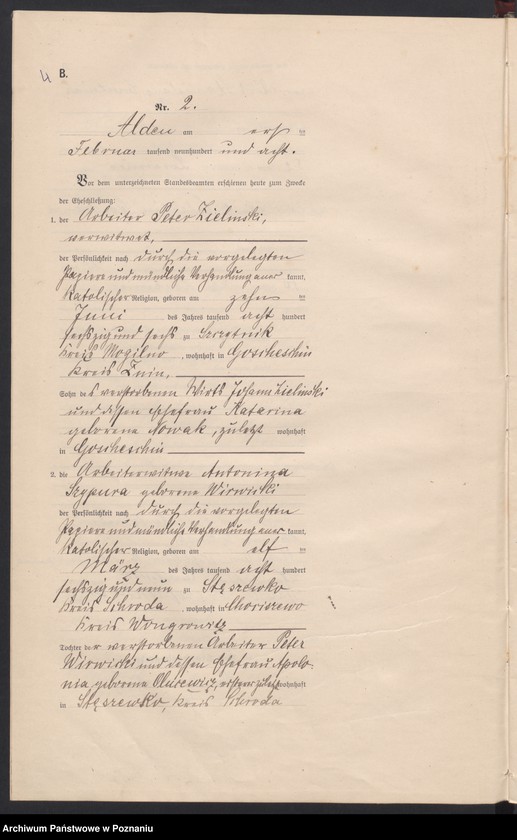 4 B.
Nr. 2.
Alden am erst en
Februar tausend neunhundert und acht.
Vor dem unterzeichneten Standesbeamten erschienen heute zum Zwecke
der Eheschließung:
1. der Arbeiter Peter Zielinski,
verwitwet,
der Persönlichkeit nach durch die vorgelegten
Papiere und mündliche Verhandlung aner kannt,
katholischer Religion, geboren am zehn ten
Juni des Jahres tausend acht hundert
sechszig und sechs zu
Kreis Mogilno, wohnhaft in Goscheschin
Kreis Znin,
Sohn des verstorbenen Wirts Johann Zielinski
und dessen Ehefrau Katarina
geborene Nowak, zuletzt wohnhaft
in Goscheschin
2. die Arbeiterwitwe Antonina
Szypura geborene Wirwicki
der Persönlichkeit nach durch die vorgelegten
Papiere und mündliche Verhandlung aner kannt,
katholischer Religion, geboren am elf ten
März des Jahres tausend acht hundert
sechszig und neun zu Stęszewko
Kreis Schroda, wohnhaft in
Kreis Wongrowitz
Tochter der verstorbenen Arbeiter Peter
Wirwicki und dessen Ehefrau Apolo-
nia geborene wohnhaft
in Stęszewko, Kreis Schroda
Archiwum Państwowe w Poznaniu